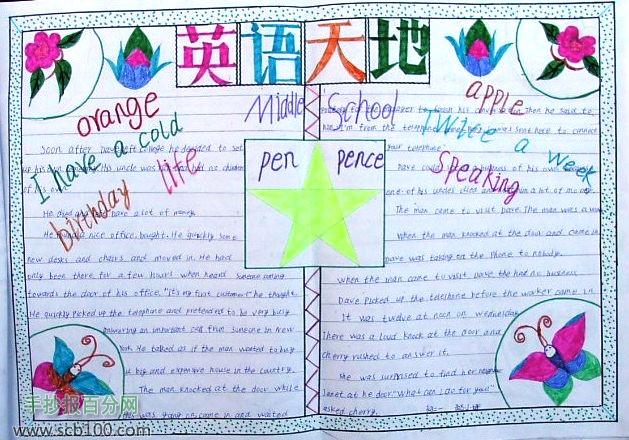 英语天地
orange
I have a cold
birthday
life
Middle School
apple
Twice a week
Speaking
pen pence
Soon after Dave left college he decided to set
up his own
His uncle was
of his own.
He died and left Dave a lot of money.
He found a nice office, bought. He quickly some
new desks and chairs and moved in. He had
only been there for a few hours when heard someone coming
towards the door of his office. "It's my first customer" he thought.
He quickly picked up the telephone and pretended to be very busy
answering an important call from someone in New
York. He talked as if the man wanted to buy
a big and expensive house in the country.
The man knocked at the door while
he was going on, came in and waited
for the
to finish his conversation. Then he said to
him, "I'm from the telephone
was sent here to connect
your telephone."
Dave
business of his own
one of his uncles died and
a lot of money.
The man came to visit pave. The man was a
When the man knocked at the door and came in
pave was talking on the phone to nobody.
When the man came to visit pave the had no business
Dave picked up the telephone before the worker came in
It was twelve at noon on wednesday
There was a loud knock at the door and
Cherry rushed to answer it.
She was surprised to find her
Janet at he door "What can I do for you"
asked cherry.
手抄报百分网
www.scb100.com